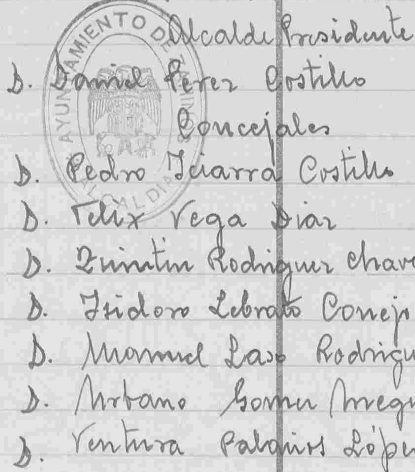 Alcalde Presidente
D. Daniel Perez Costillo
Concejales
D. Pedro Iciarra Costillo
D. Felix Vega Diaz
D. Quintin Rodriguez Chave
D. Isidoro Lebrato Conejo
D. Manuel Laso Rodrigu
D. Urbano Gomez
D. Ventura Palacios López
AYUNTAMIENTO DE
ALCALDIA